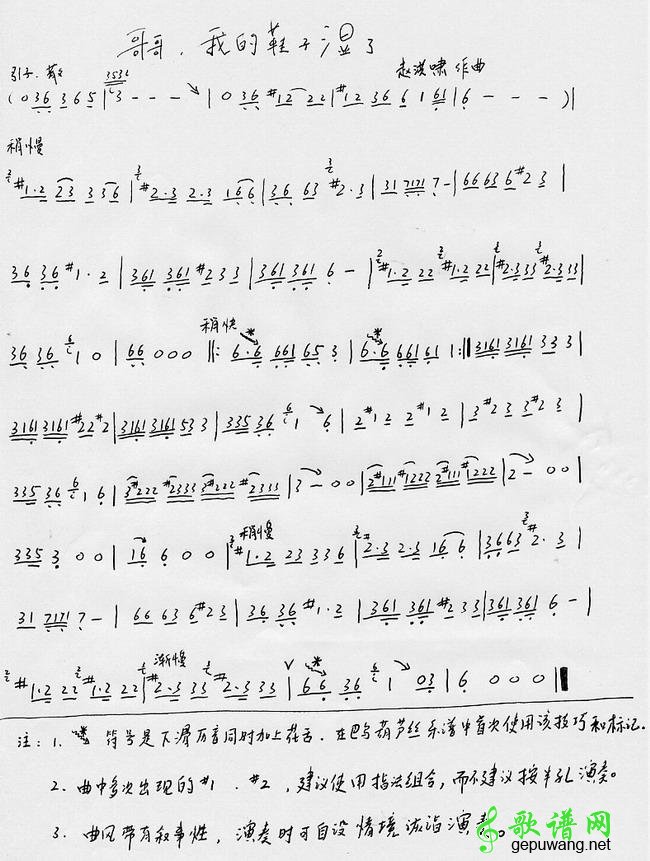 哥哥,我的鞋子湿了
引子.散 3532 赵洪啸 作曲
(036 365 | 3 - - - | 036 #12 22 | #12 36 6 1 61 | 6 - - - )|
稍慢
#1·2 23 336 | #2·3 2·3 166 | 36 63 #2·3 | 31 7171 7 - | 66636 #23 |
36 36 #1·2 | 361 361 #233 | 361 361 6 - | #1·2 22 #1·2 22 | #2·333 #2·333 |
稍快
36 36 1 0 | 66 000 |: 6·6 661 65 3 | 6·6 661 61 1 :| 3161 3161 33 3 |
3161 3161 #22 #2 | 3161 3161 53 3 | 335 36 1 6 | 2 #12 2 #12 | 3 #23 3 #23 |
335 36 1 6 | 3#222 #2333 3#222 #2333 | 3 - 00 | 2#111 #1222 2#111 #1222 | 2 - 00 |
稍慢
335 3 0 0 | 16 6 0 0 | #1·2 23 336 | 2·3 2·3 16 6 | 3663 #2·3 |
31 7171 7 - | 66 63 6 #23 | 36 36 #1·2 | 361 361 #233 | 361 361 6 - |
渐慢
#1·2 22 #1·2 22 | #2·3 33 #2·3 33 | 66 36 1 03 | 6 0 0 0 ||
注:1. 符号是下滑历音同时加上花舌.在巴乌葫芦丝乐谱中首次使用该技巧和标记.
2. 曲中多次出现的#1.#2,建议使用指法组合,而不建议按半孔演奏。
3. 曲风带有叙事性,演奏时可自设情境诙谐演奏。
歌谱网
gepuwang.net